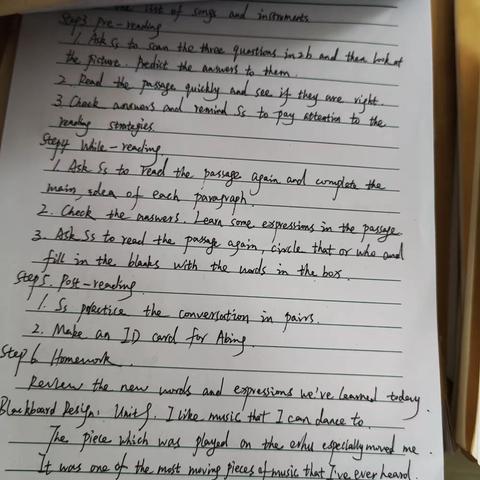 the list of songs and instruments
Step3 Pre-reading
1. Ask Ss to scan the three questions in 2b and then look at
the picture. Predict the answers to them.
2. Read the passage quickly and see if they are right.
3. Check answers and remind Ss to pay attention to the
reading strategies
Step4 While-reading
1. Ask Ss to read the passage again and complete the
main idea of each paragraph.
2. Check the answers. Learn some expressions in the passage.
3. Ask Ss to read the passage again, circle that or who and
fill in the blanks with the words in the box.
Step5. Post-reading
1. Ss practice the conversation in pairs.
2. Make an ID card for Abing.
Step 6 Homework.
Review the new words and expressions we've learned today.
Blackboard Design: Unit9. I like music that I can dance to.
The piece which was played on the erhu especially moved me.
It was one of the most moving pieces of music that I've ever heard.